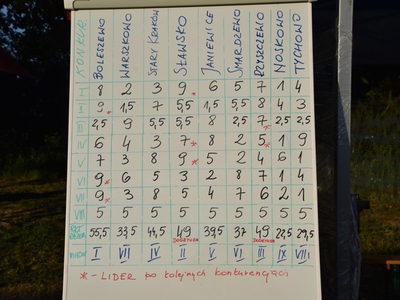 KONKUR. BOLESZEWO WARSZKOWO STARY KRAKÓW SŁAWSKO JANIEWICE SMARDZEWO RZYSZCZEWO NOSKOWO TYCHOWO
I 8 2 3 9* 6 5 7 1 4
II 9* 1,5 7 5,5 1,5 5,5 8 4 3
III 2,5 9 5,5 5,5 8 2,5 7* 2,5 2,5
IV 6 4 3 7* 8 2 5* 1 9
V 7 3 8 9* 5 2 4 6 1
VI 9* 6 5 3 2 8 7 1 4
VII 9* 3 8 5 4 7 6 2 1
VIII 5 5 5 5 5 5 5 5 5
55,5 33,5 44,5 49 39,5 37 49 22,5 29,5
I VII IV II V VI III IX VIII
* - LIDER po kolejnych konkurencjach